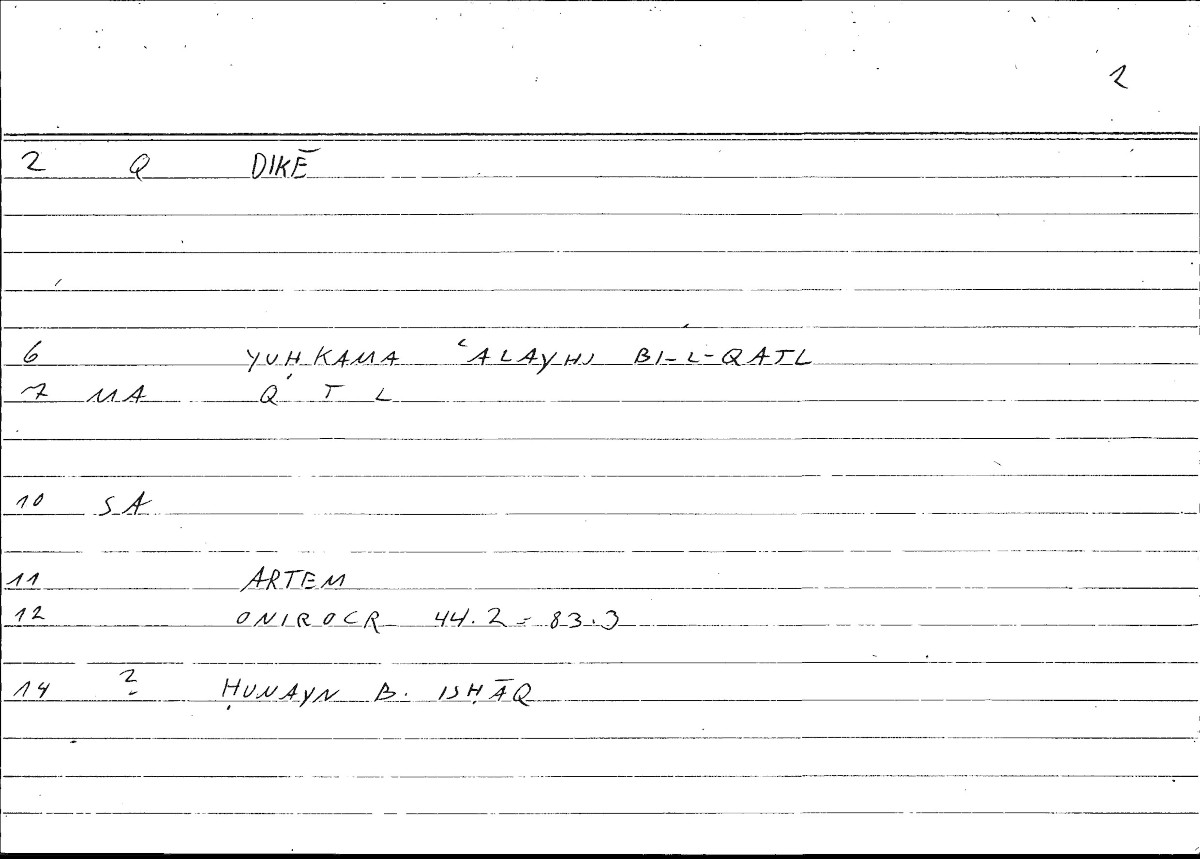 1
2 Q DIKĒ
6 YUḤKAMA ʿALAYHI BI-L-QATL
7 MA Q T L
10 SA
11 ARTEM
12 ONIROCR 44.2 = 83.3
14 2 ḤUNAYN B. ISḤĀQ